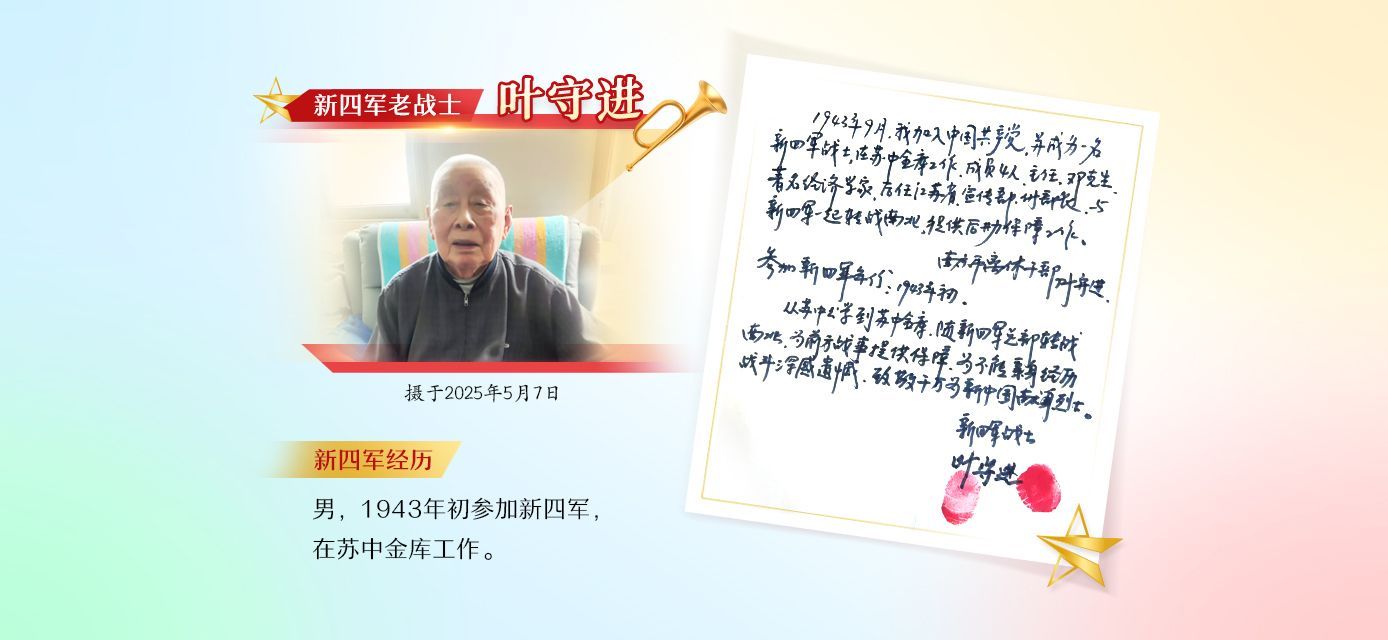 新四军老战士 叶守进
摄于2025年5月7日
新四军经历
男，1943年初参加新四军，
在苏中金库工作。
1943年9月，我加入中国共产党，并成为一名
新四军战士，在苏中金库工作，成员4人，主任，邓克生，
著名经济学家，后任江苏省宣传部，付部长，与
新四军一起转战南北，提供后勤保障工作。
离休干部叶守进
参加新四军年份：1943年初。
从苏中公学到苏中金库，随新四军总部转战
南北，为前方战事提供保障，为不能亲身经历
战斗深感遗憾，致敬千万为新中国献革烈士。
新四军战士
叶守进